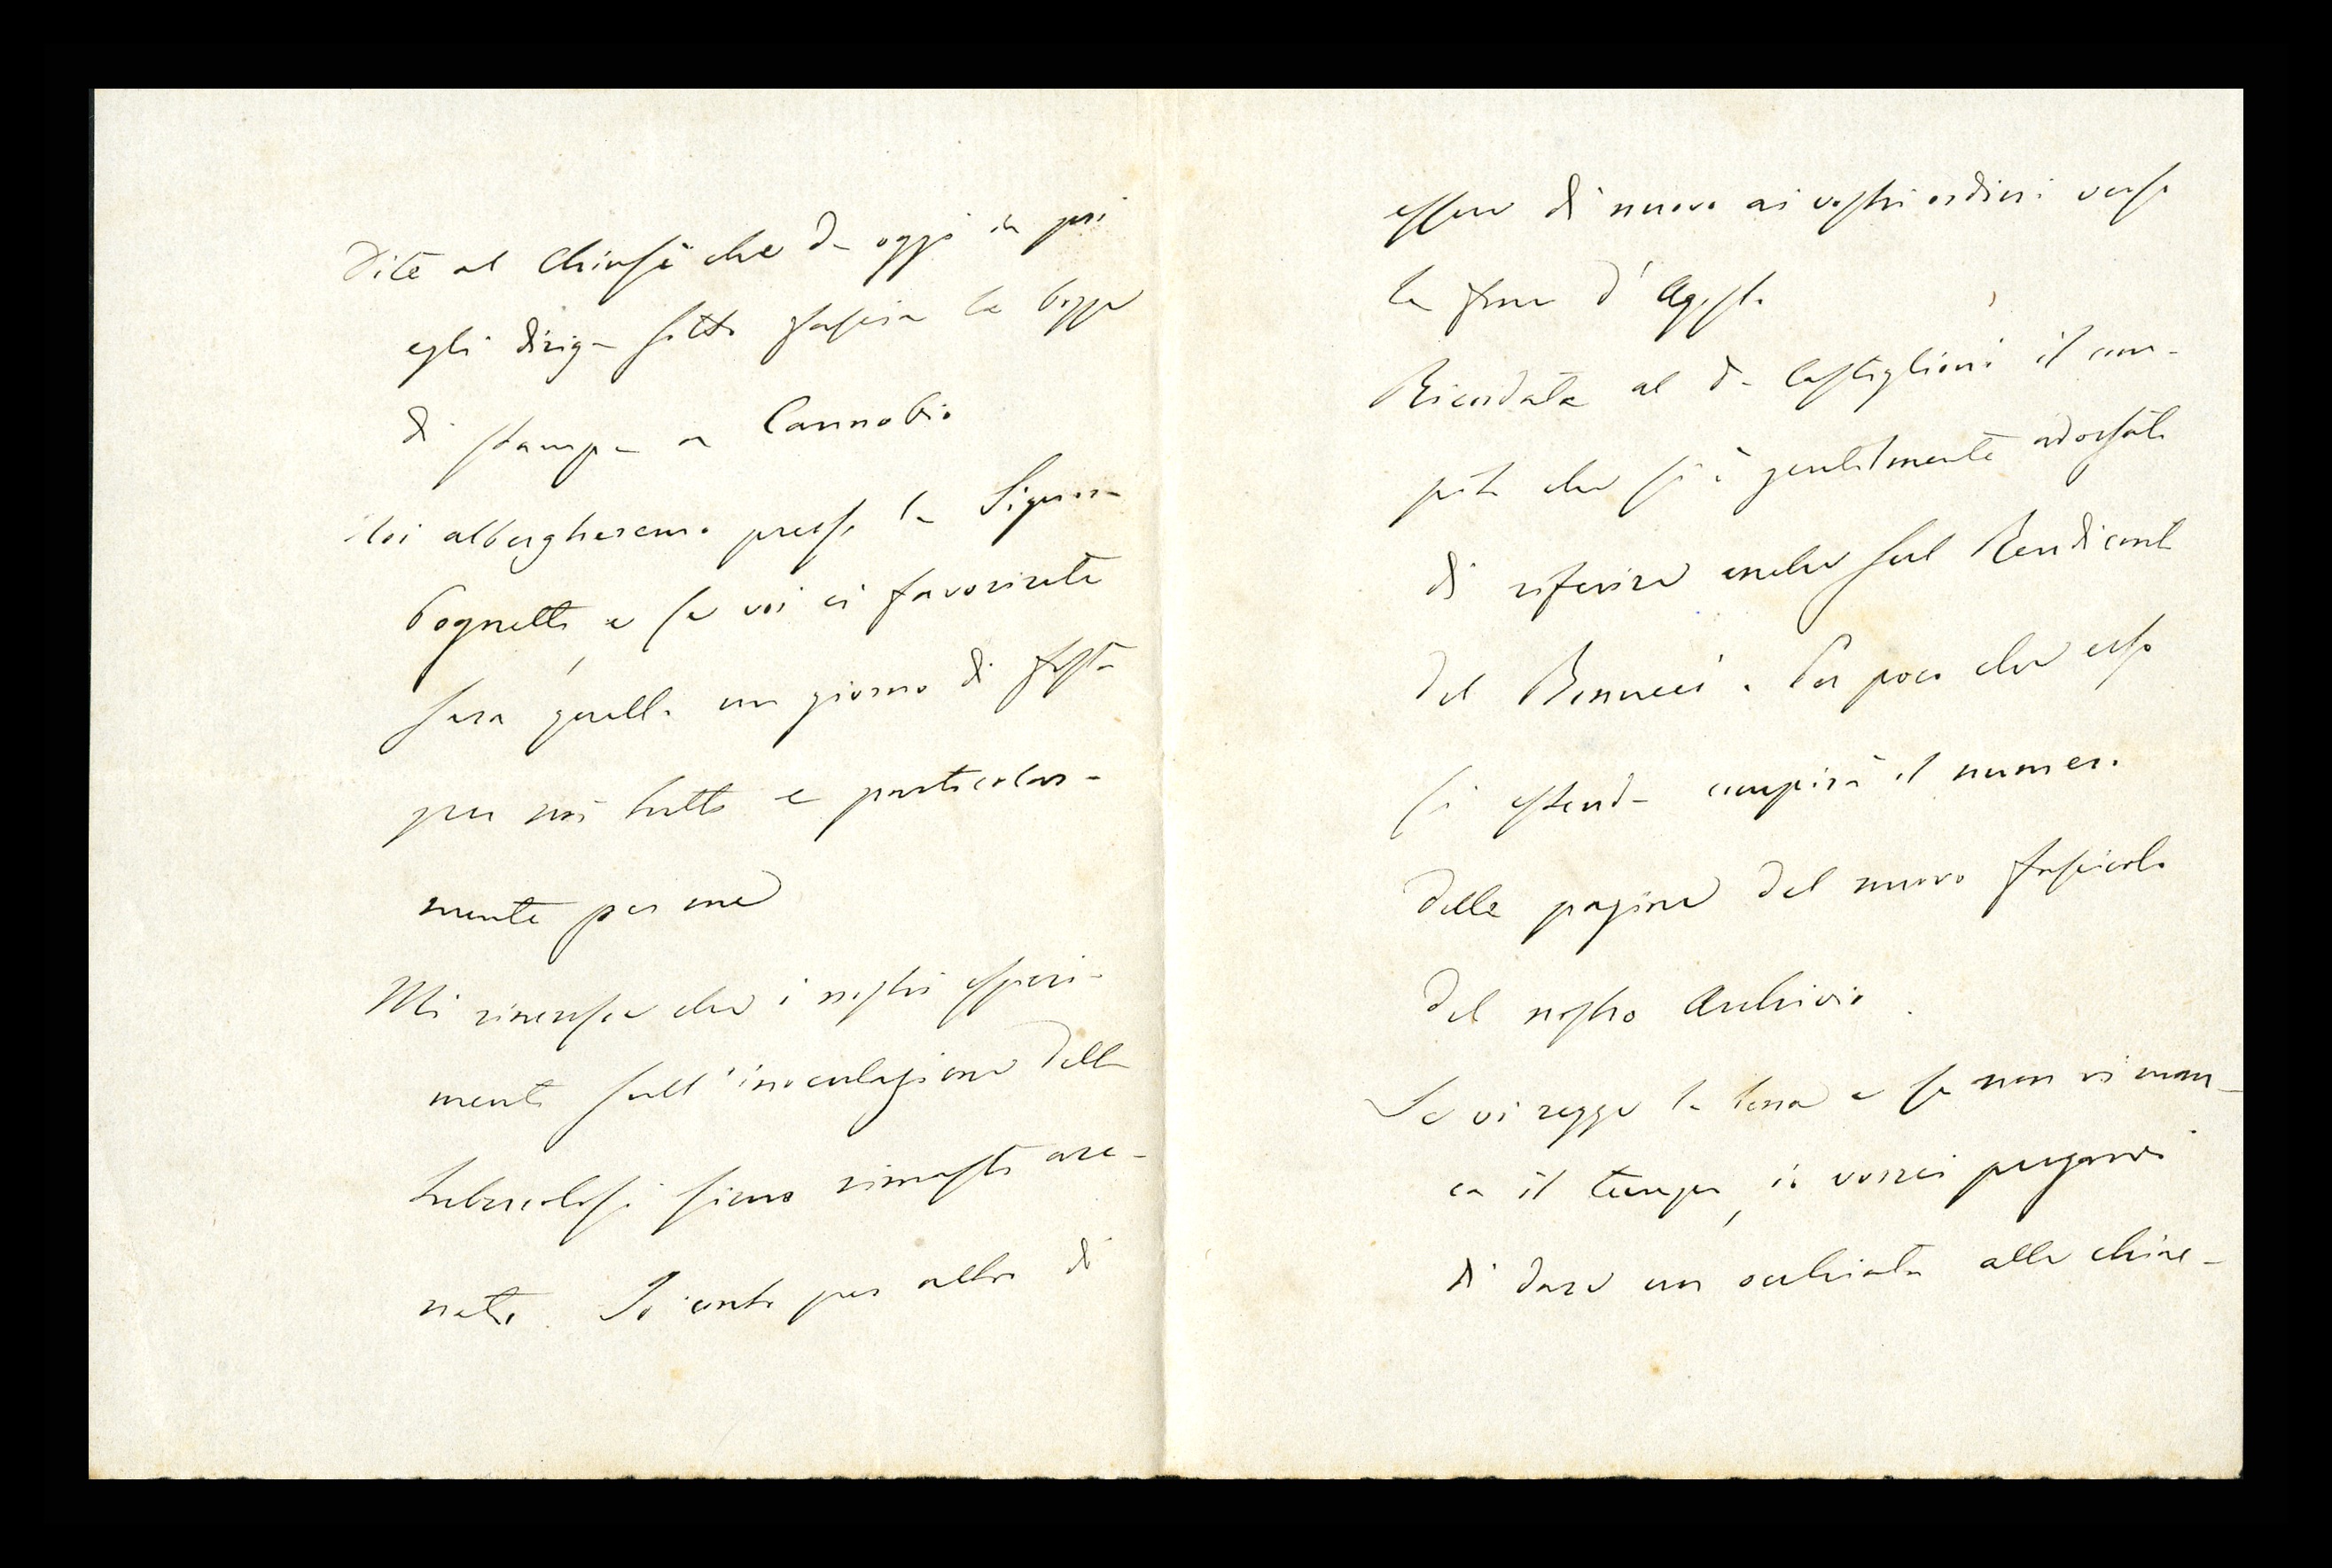 Dite al Chiusi che da oggi in poi
egli diriga sotto fascia le bozze
di stampa a Cannobio
Noi albergheremo presso la Signora
Bognetti, e se voi ci favorirete
sarà quello un giorno di festa
per noi tutti e particolar-
mente per me
Mi rincresce che i nostri esperi-
menti sull'inoculazione della
tubercolosi siano rimasti are-
nati. Io conto per altro di
essere di nuovo ai vostri ordini verso
la fine d'Agosto
Ricordate al Dr Castiglioni il com-
pito che si è gentilmente addossato
di riferire anche sul Rendiconto
del Bonucci. Per poco che esso
si estenda compirà il numero
delle pagine del nuovo fascicolo
del nostro Archivio.
Se vi regge la lena e se non vi man-
ca il tempo, io vorrei pregarvi
di dare un occhiata alla chiu-